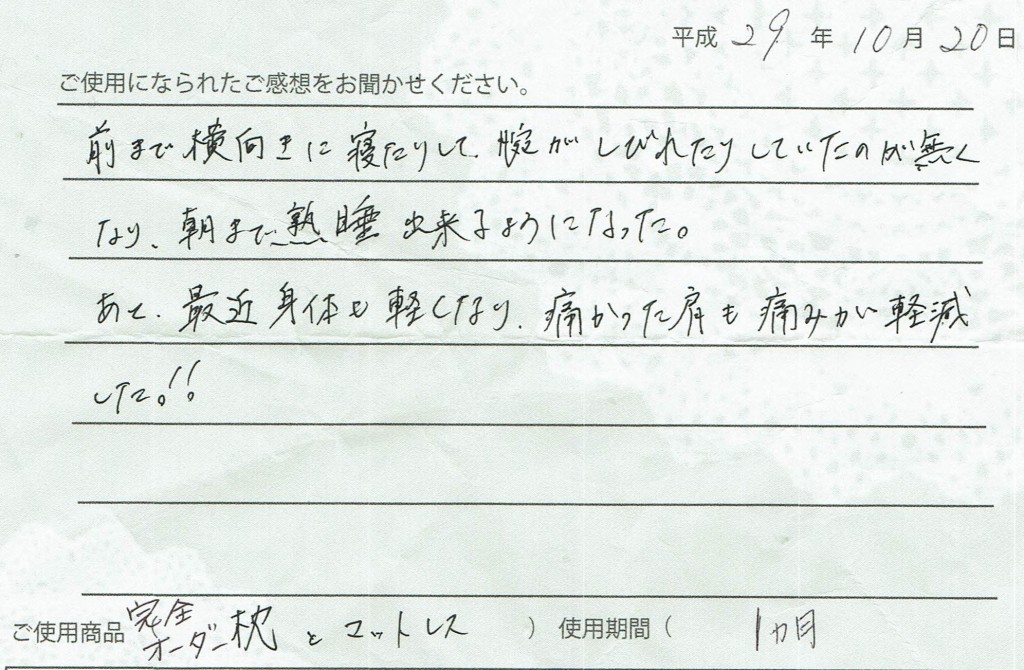 平成 29 年 10 月 20 日
ご使用になられたご感想をお聞かせください。
前まで横向きに寝たりして、腕がしびれたりしていたのが無く
なり、朝まで熟睡出来るようになった。
あと、最近身体も軽くなり、痛かった肩も痛みが軽減
した。!!
ご使用商品 完全オーダー枕とマットレス ) 使用期間 ( 1ヵ月